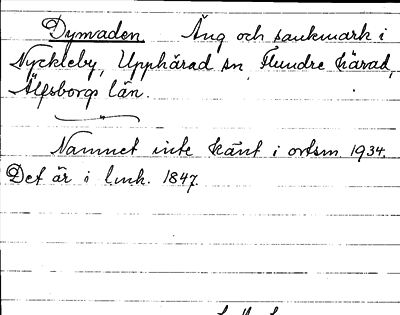 Dymaden Äng och sankmark i
Nyckleby, Upphärad sn, Flundre härad,
Älfsborgs län.
Namnet inte känt i ortsn 1934.
Det är i 1847.